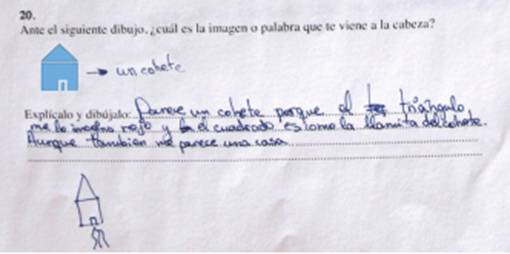 20.
Ante el siguiente dibujo, ¿cuál es la imagen o palabra que te viene a la cabeza?
un cohete
Explícalo y dibújalo: Parece un cohete porque el triángulo
me lo imagino rojo y el cuadrado es como la llamita del cohete.
Aunque tambien me parece una casa